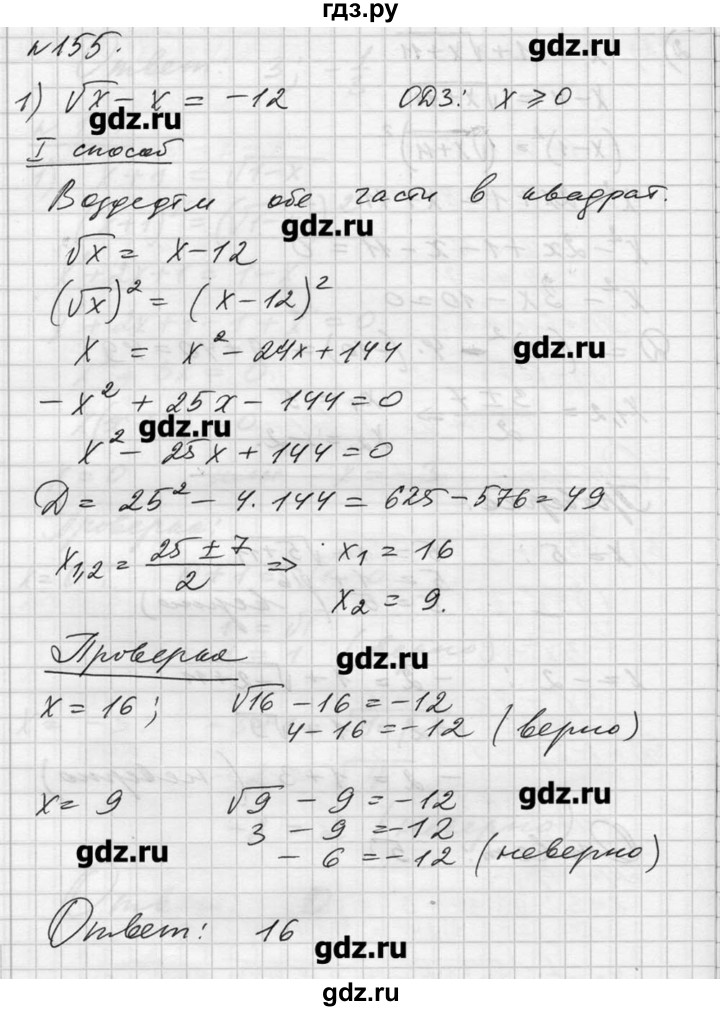 гдз.ру
№155.
gdz.ru
1) √x - x = -12 ОДЗ: x ⩾ 0
gdz.ru
I способ
Возведём обе части в квадрат.
gdz.ru
√x = x - 12
(√x)² = (x - 12)²
x = x² - 24x + 144
gdz.ru
-x² + 25x - 144 = 0
gdz.ru
x² - 25x + 144 = 0
Д = 25² - 4·144 = 625 - 576 = 49
x₁,₂ = (25 ± 7)/2 ⇒ x₁ = 16
x₂ = 9.
Проверка
gdz.ru
x = 16; √16 - 16 = -12
4 - 16 = -12 (верно)
gdz.ru
x = 9 √9 - 9 = -12
3 - 9 = -12
gdz.ru
- 6 = -12 (неверно)
Ответ: 16
gdz.ru
gdz.ru